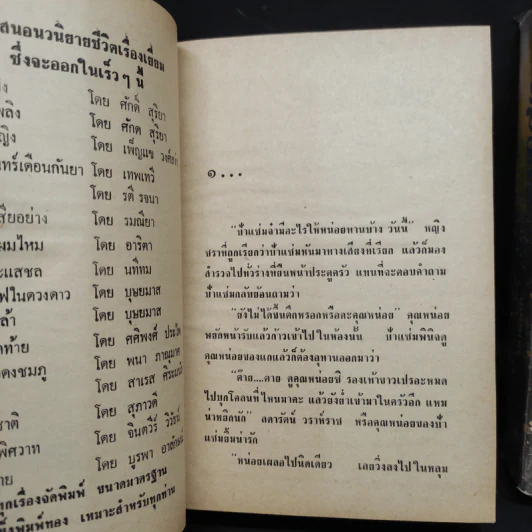 สนอนวนิยายชีวิตเรื่องเยี่ยม
ซึ่งจะออกในเร็วๆ นี้
โดย ศักดิ์ สุริยา
พลิง โดย ศักดิ์ สุริยา
หญิง โดย เพ็ญแข วงศ์สง่า
นทร์เดือนกันยา โดย เทพเทวี
โดย รตี รจนา
สียอย่าง โดย รมณียา
มไหม โดย อาริตา
ะแสชล โดย นทีทม
ฟในดวงดาว โดย บุษยมาส
ล้า โดย บุษยมาส
ดท้าย โดย ศศิพงศ์
ดงชมภู โดย พนา ภาณุมาศ
โดย สาเรส
ชาติ โดย สุภาวดี
พิศวาท โดย จินตวีร์ วิวัธน์
าย โดย บูรพา
ทุกเรื่องจัดพิมพ์ ขนาดมาตรฐาน
พิมพ์ทอง เหมาะสำหรับทุกท่าน
๑...
"ป้าแช่มจ๋ามีอะไรให้หน่อยทานบ้าง วันนี้" หญิง
ชราที่ถูกเรียกว่าป้าแช่มหันมาทางเสียงที่เรียก แล้วก็มอง
สำรวจไปทั่วร่างที่ยืนหน้าประตูครัว แทนที่จะตอบคำถาม
ป้าแช่มกลับย้อนถามว่า
"ยังไม่ได้ขึ้นตึกหรอกหรือคะคุณหน่อย" คุณหน่อย
พยักหน้ารับแล้วก้าวเข้าไปในห้องนั้น ป้าแช่มพินิจดู
คุณหน่อยของแกแล้วก็ต้องอุทานออกมาว่า
"ต๊าย....ตาย ดูคุณหน่อยซิ รองเท้าขาวเปรอะหมด
ไปทุกโคลนที่ไหนมาคะ แล้วยังย่ำเข้ามาในครัวอีก แหม
น่าหยิกนัก" ลดารัตน์ วราห์ราช หรือคุณหน่อยของป้า
แช่มยิ้มน่ารัก
"หน่อยเผลอไปนิดเดียว เลยวิ่งลงไปในหลุม